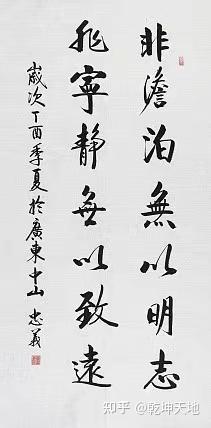 非澹泊無以明志
非寧靜無以致遠
歲次丁酉季夏於廣東中山 忠義
知乎 @乾坤天地